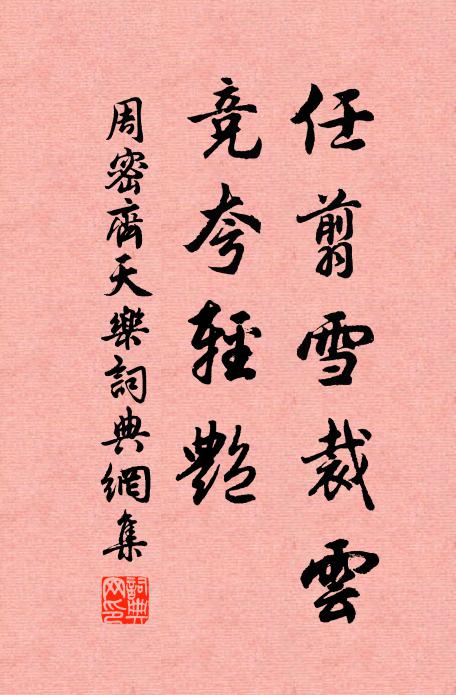 任翦雪裁雲
竞夸輕艷
周密齊天樂詞典網集
詞典网印